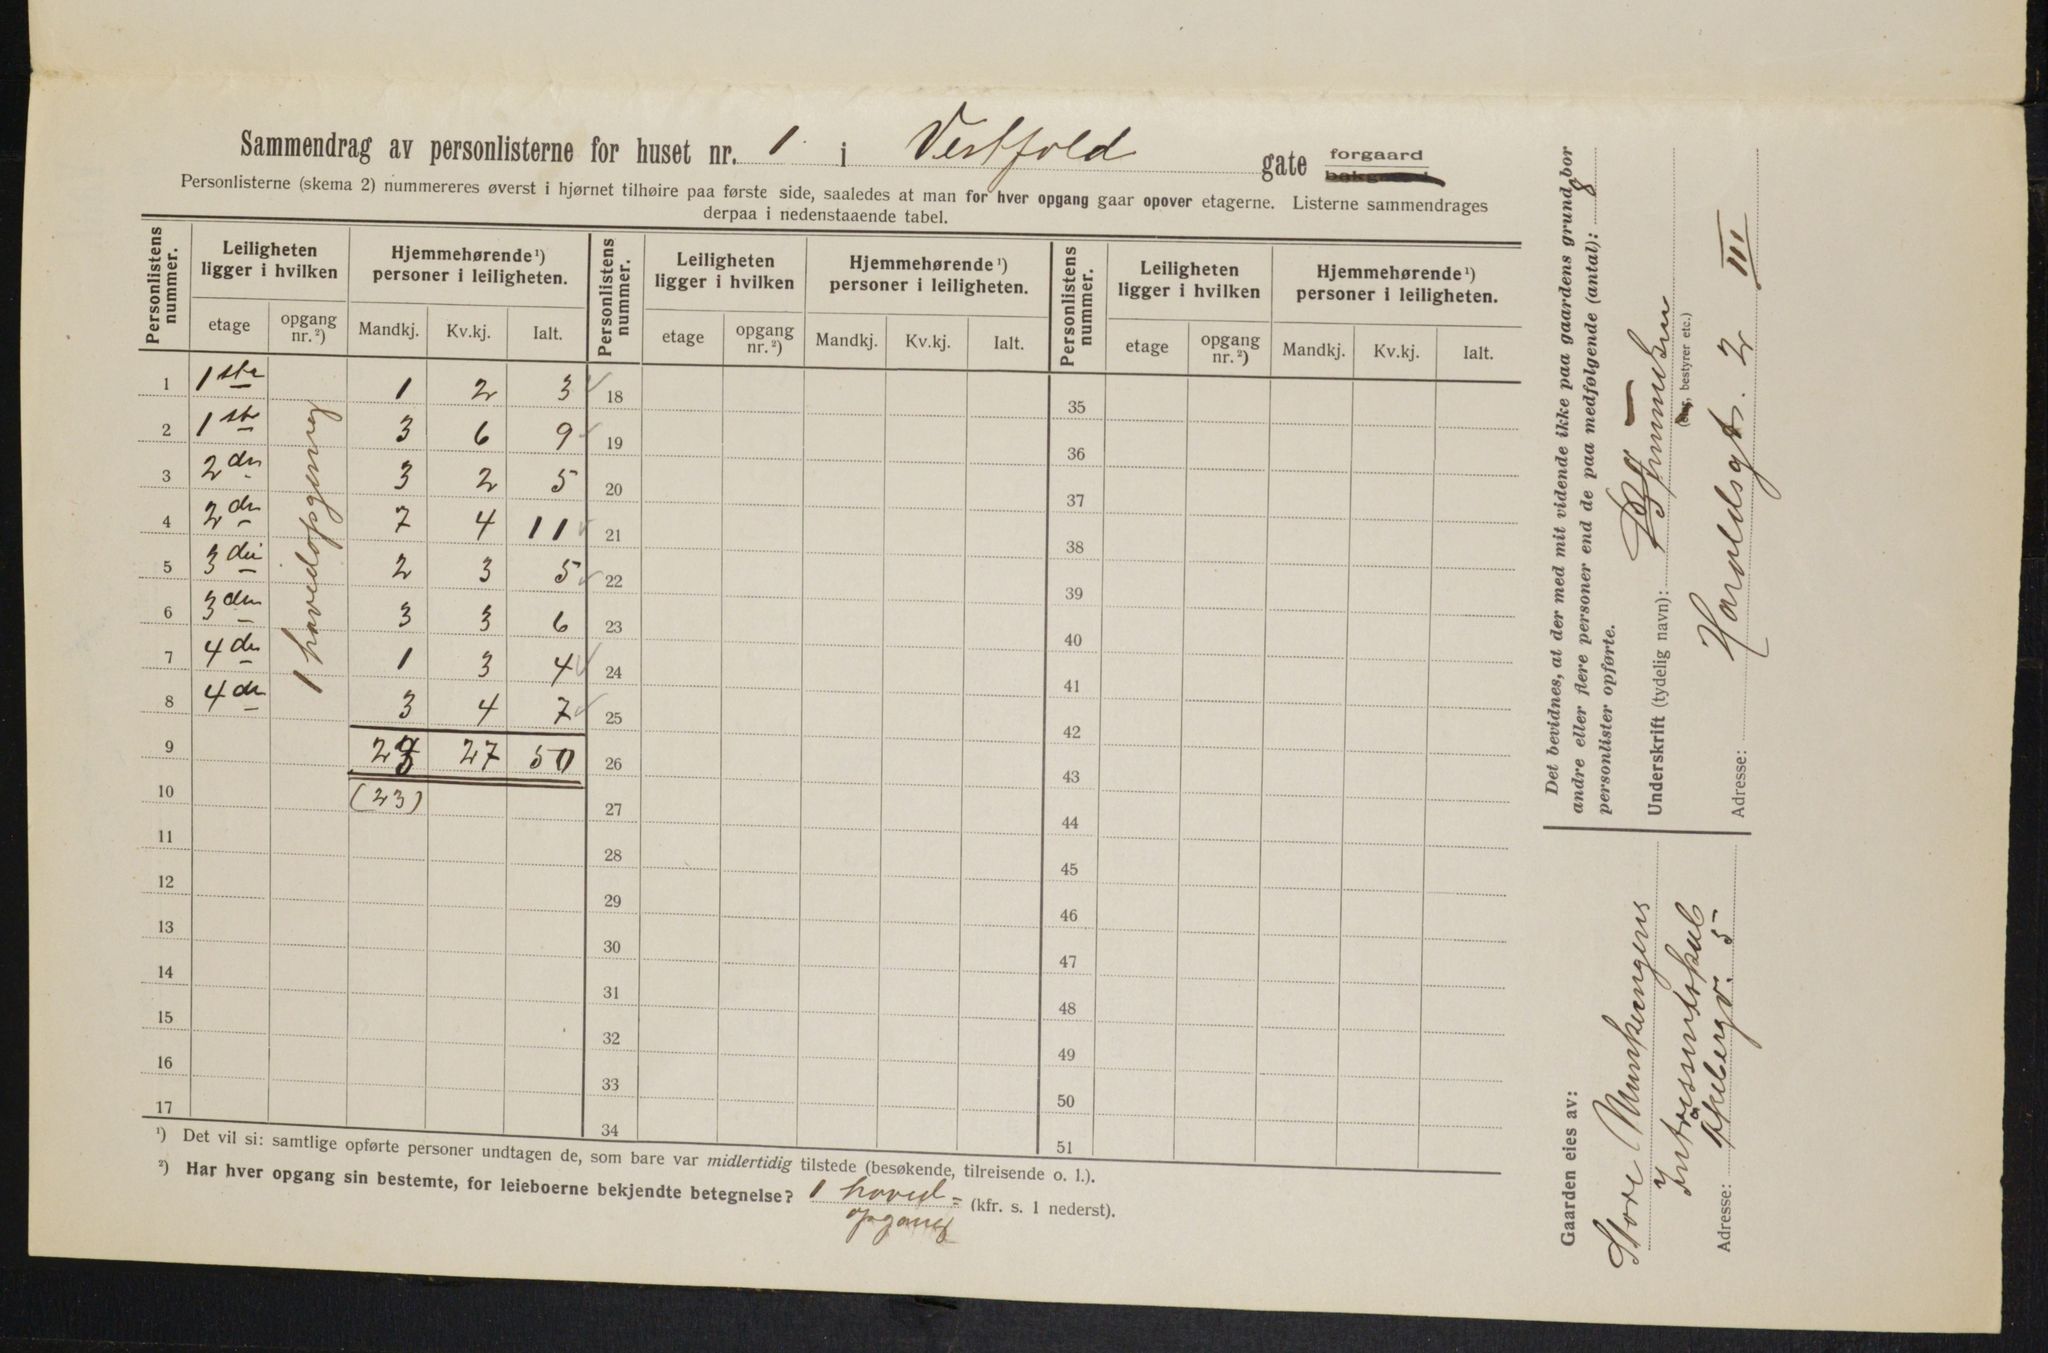 Sammendrag av personlisterne for huset nr. 1 i Vestfold gate forgaard
Personlisterne (skema 2) nummereres øverst i hjørnet tilhøire paa første side, saaledes at man for hver opgang gaar opover etagerne. Listerne sammendrages
derpaa i nedenstaaende tabel.
Personlistens nummer. Leiligheten ligger i hvilken Hjemmehørende ¹) personer i leiligheten. Personlistens nummer. Leiligheten ligger i hvilken Hjemmehørende ¹) personer i leiligheten. Personlistens nummer. Leiligheten ligger i hvilken Hjemmehørende ¹) personer i leiligheten.
etage opgang nr. ²) Mandkj. Kv.kj. Ialt. etage opgang nr. ²) Mandkj. Kv.kj. Ialt. etage opgang nr. ²) Mandkj. Kv.kj. Ialt.
1 hovedopgang
1 1ste 1 2 3 18 35
2 1ste 3 6 9 19 36
3 2den 3 2 5 20 37
4 2den 7 4 11 21 38
5 3die 2 3 5 22 39
6 3den 3 3 6 23 40
7 4de 1 3 4 24 41
8 4de 3 4 7 25 42
9 23 27 50 26 43
10 (23) 27 44
11 28 45
12 29 46
13 30 47
14 31 48
15 32 49
16 33 50
17 34 51
¹) Det vil si: samtlige opførte personer undtagen de, som bare var midlertidig tilstede (besøkende, tilreisende o. l.).
²) Har hver opgang sin bestemte, for leieboerne bekjendte betegnelse? 1 hoved= (kfr. s. 1 nederst).
opgang
Det bevidnes, at der med mit vidende ikke paa gaardens grund bor
andre eller flere personer end de paa medfølgende (antal): 8
personlister opførte.
Underskrift (tydelig navn):
(eier, bestyrer etc.)
Adresse: Haraldsgt. 2 III
Gaarden eies av:
Store Munkengens
Intressentskab
Adresse: Akebergv. 5